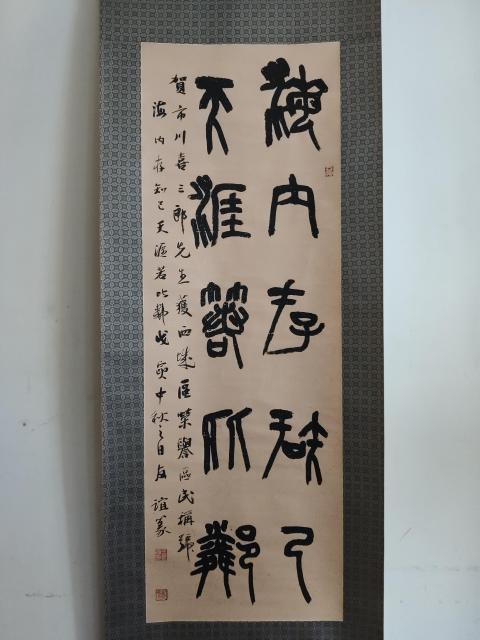 海内存知己
天涯若比鄰
賀市川喜三郎先生獲西城區榮譽區民稱號
海内存知己天涯若比鄰戊寅中秋之日友誼篆